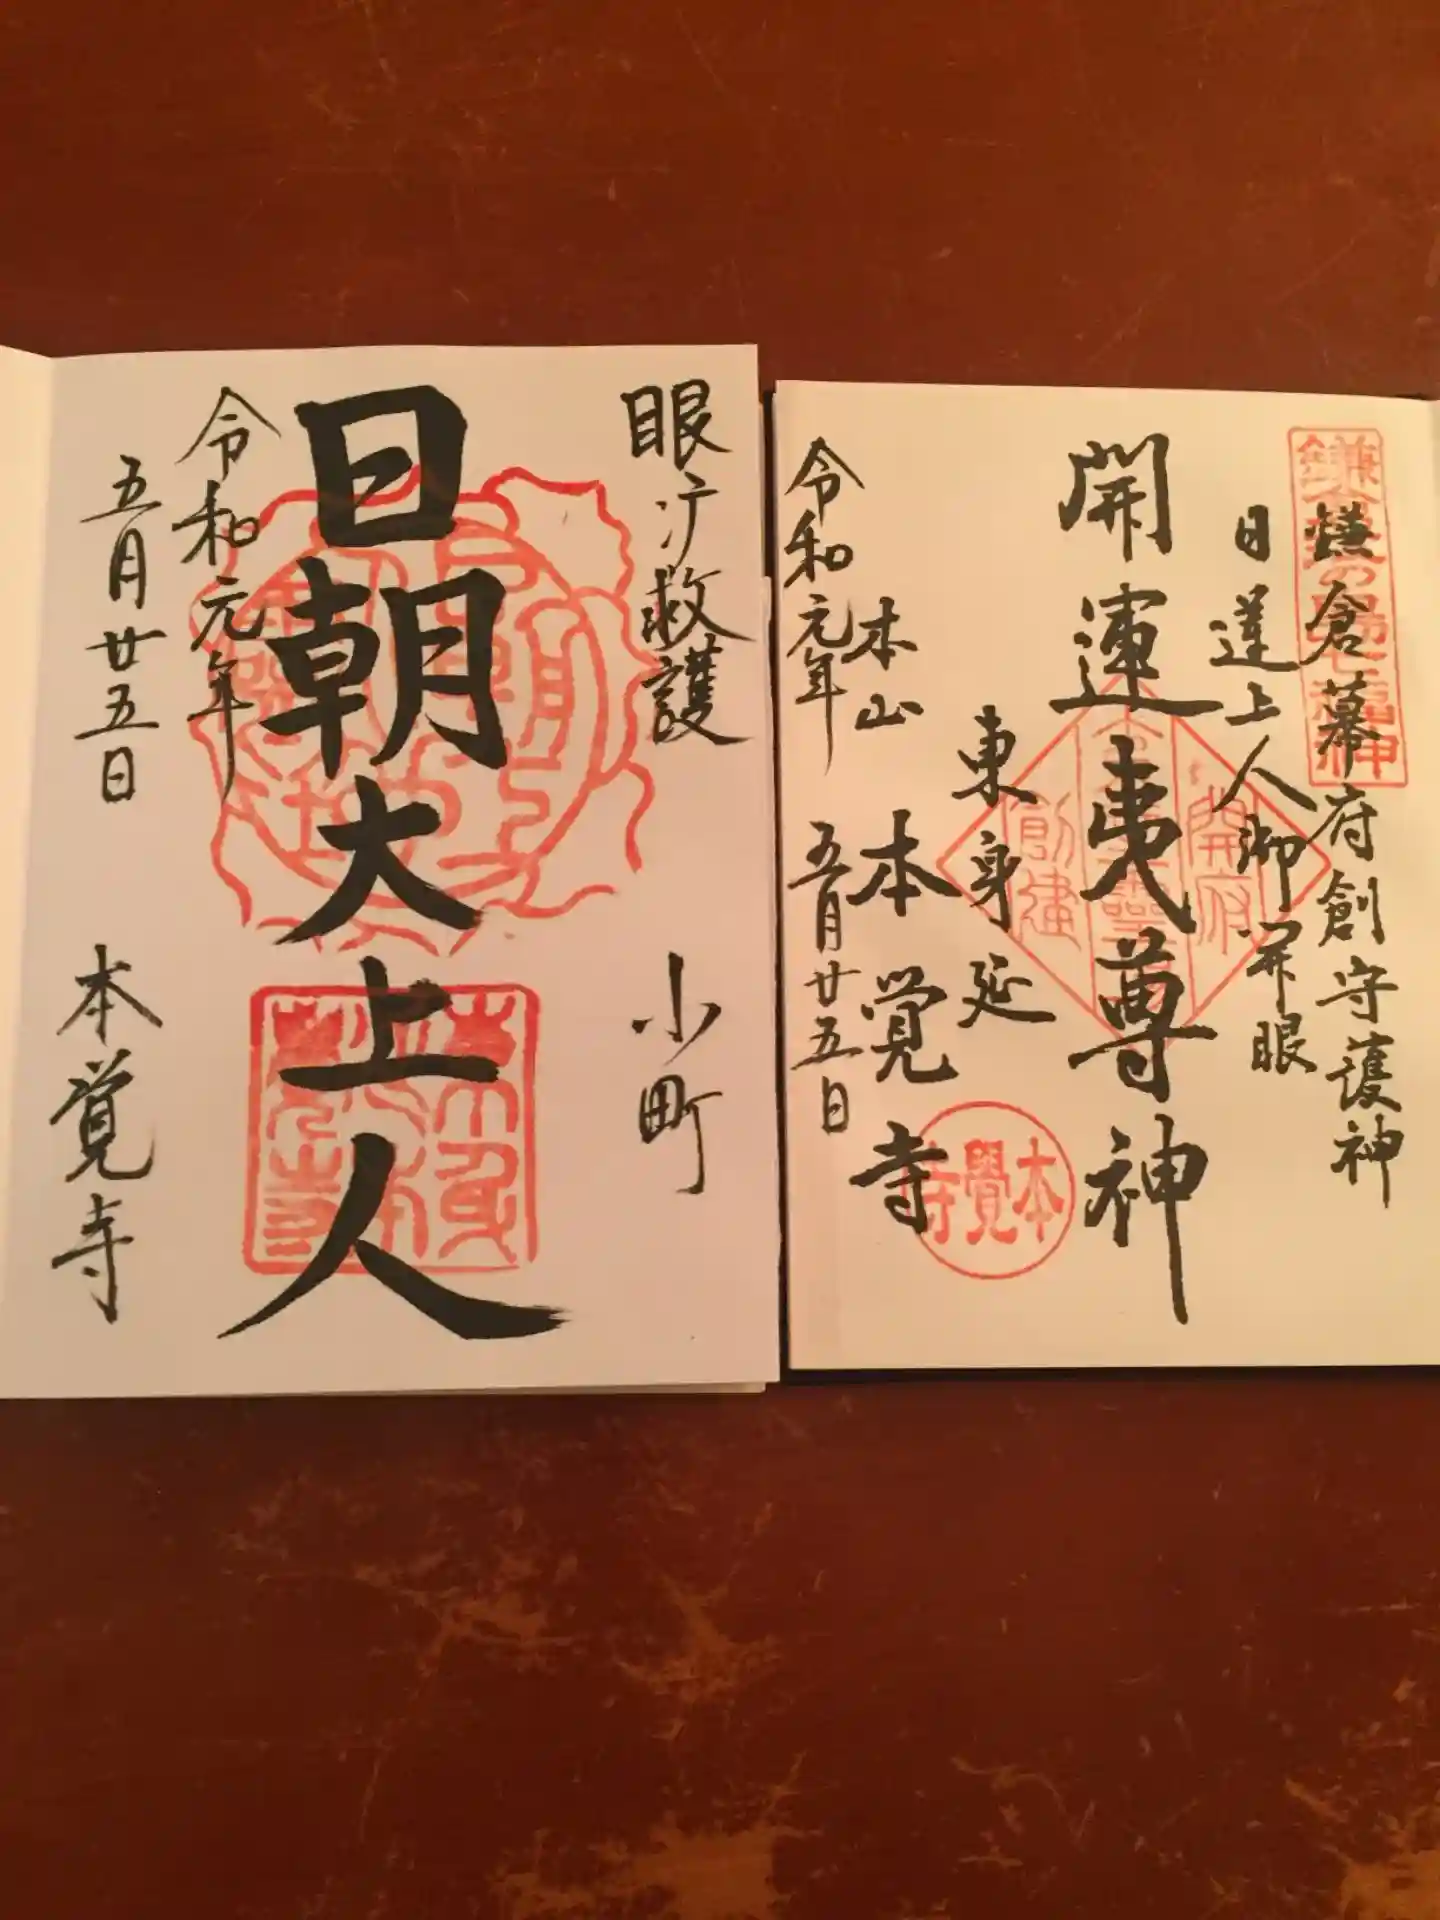 鎌倉幕府創守護神
日蓮上人御開眼
開運夷尊神
東身延
本山
本覚寺
令和元年
五月廿五日
本覺寺
開府
創建
眼疒救護
小町
日朝大上人
令和元年
五月廿五日
本覚寺